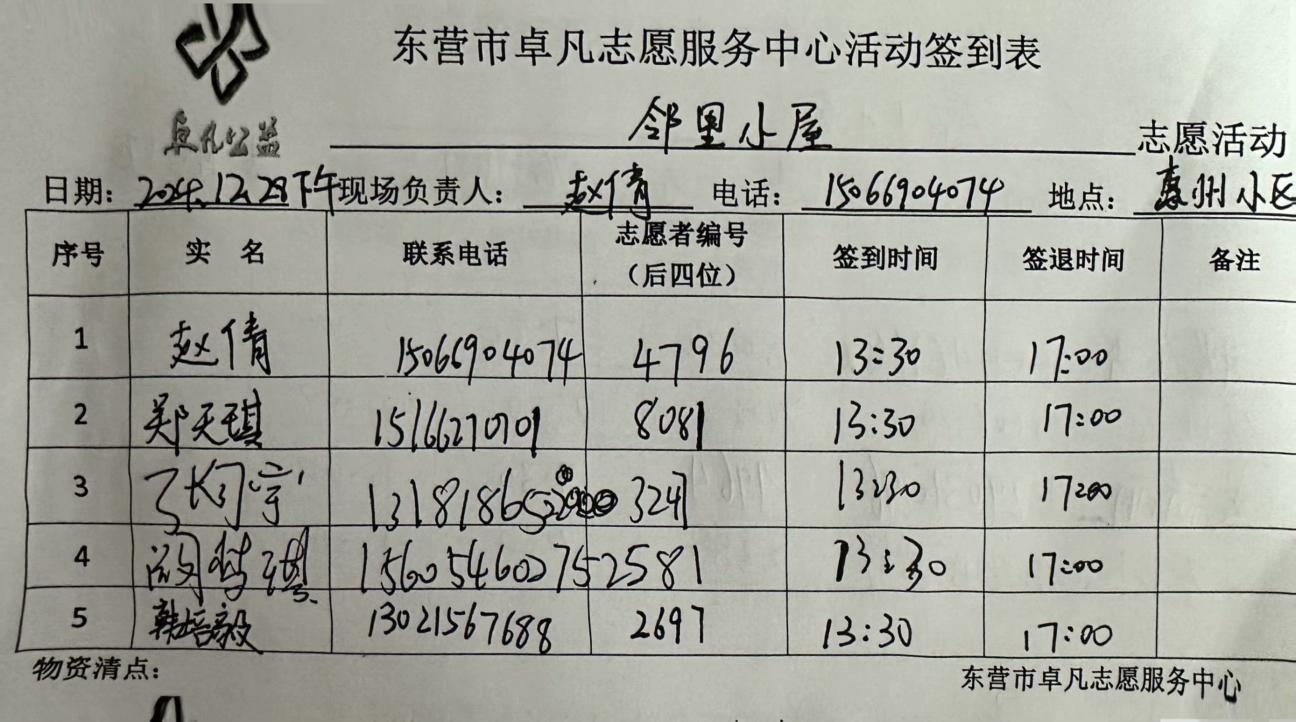 东营市卓凡志愿服务中心活动签到表
卓凡公益
邻里小屋 志愿活动
日期：2024.12.28下午 现场负责人：赵倩 电话：15066904074 地点：惠州小区
序号 实 名 联系电话 志愿者编号（后四位） 签到时间 签退时间 备注
1 赵倩 15066904074 4796 13:30 17:00
2 郑天琪 15166270701 8081 13:30 17:00
3 13181865 3247 13:30 17:00
4 15605460275 2581 13:30 17:00
5 韩培毅 13021567688 2697 13:30 17:00
物资清点：
东营市卓凡志愿服务中心